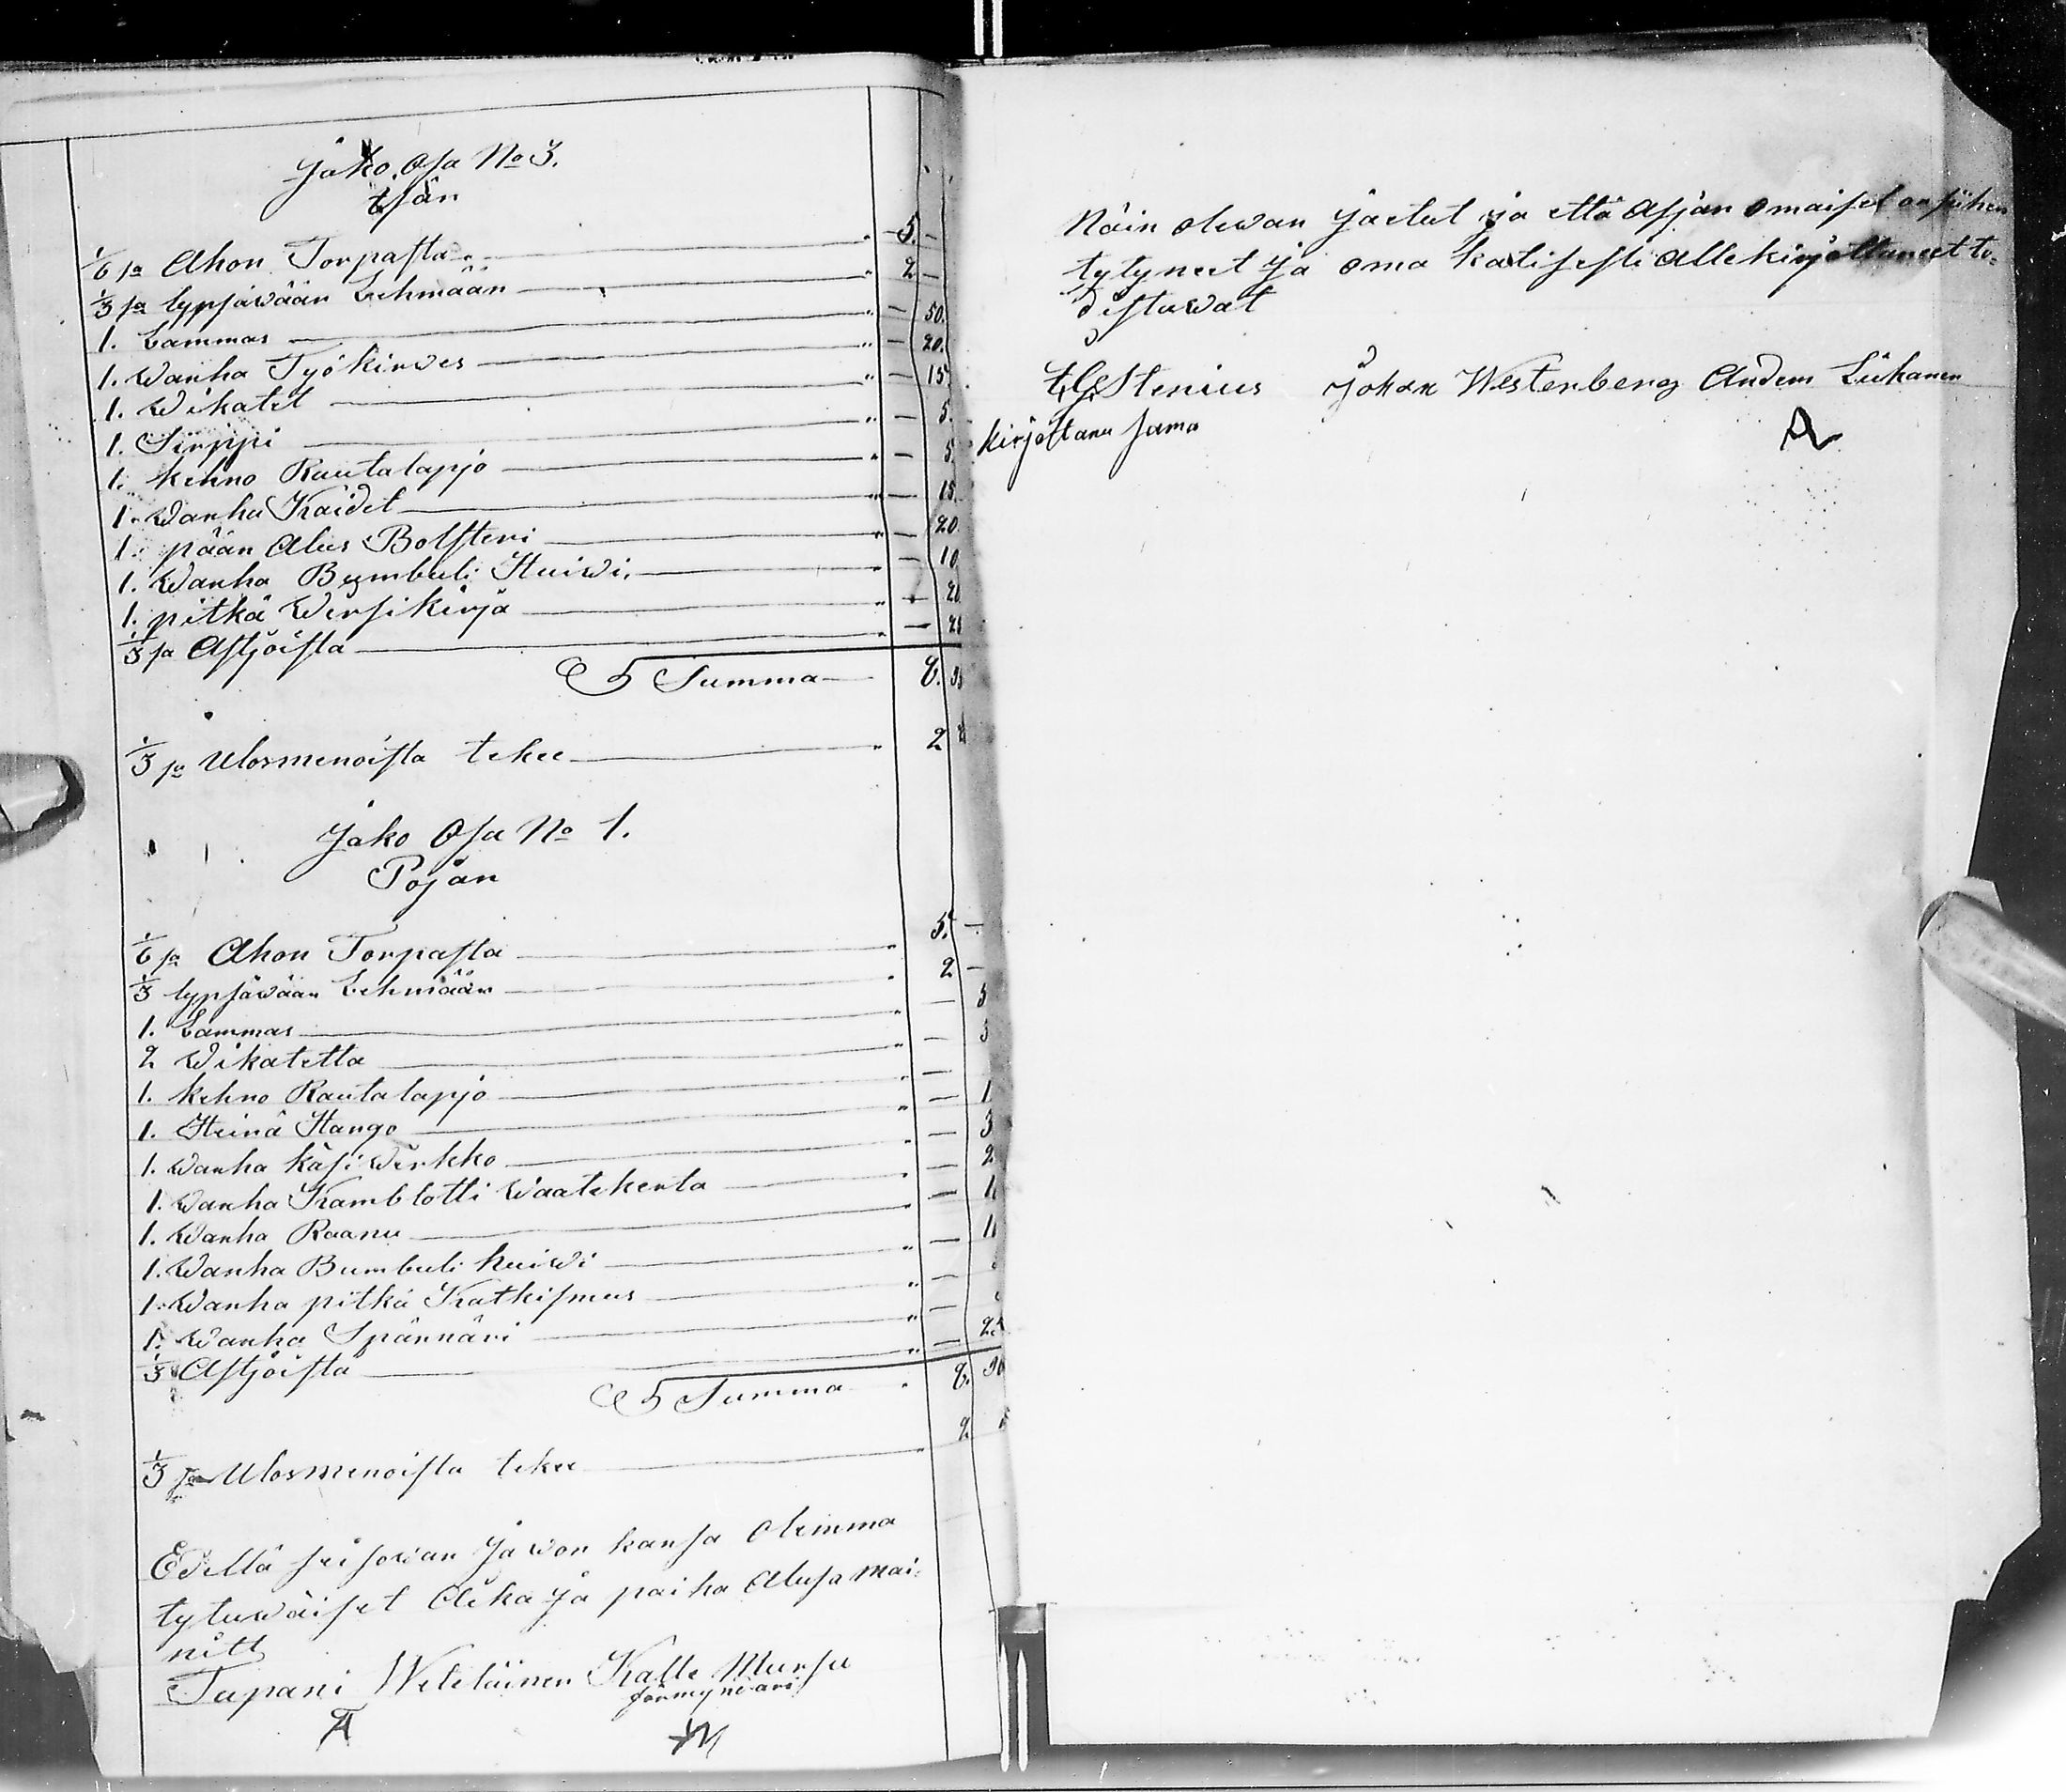 Jako Osa No 3.
Isän
1/6 sa Ahon Torpasta " 5. —
1/3 sa lypsäwään Lehmään " 2 —
1. Lammas " — 50.
1. Wanha Työkirwes " — 20.
1. Wikatet " — 15
1. Sirppi " — 5.
1. kehno Rautalapjo " — 5.
1. Wanha Kaidet " — 15.
1. pään Alus Bolsteri " — 20.
1. Wanha Bumbuli Huiwi " — 10
1. pitkä Wirsikirja " — 20
1/3 sa Astjoista " — 25
Summa 8.
1/3 sa Ulosmenoista tekee " 2
Jako Osa No 1.
Pojan
1/6 sa Ahon Torpasta " 5. —
1/3 lypsäwään Lehmään " 2 —
1. Lammas " — 5
2 Wikatetta " — 3
1. kehno Rautalapjo " —
1. Heinä Hango " — 1
1. wanha käsi Wärkko " — 3
1. wanha Kamblotti Waatekerta " — 2
1. Wanha Raanu " — 1
1. Wanha Bumbuli huiwi " — 1
1. Wanha pitkä Katkismus " —
1. Wanha Spännäri " —
1/3 Astjoista " — 25
Summa 8. 30
1/3 sa Ulosmenoista tekee " 2
Edellä seisowan Jawon kansa Olemma
tytuwäiset Aika ja paika Alusa mai-
nitt
Tapani Weteläinen Kalle Mursu
förmyndäri
Näin olewan Jaetut ja että Asjan omaiset on siihen
tytyneet ja oma kätisesti allekirjottaneet to-
distawat
Stenius Johan Westerberg Anders Liikanen
kirjottanu sama